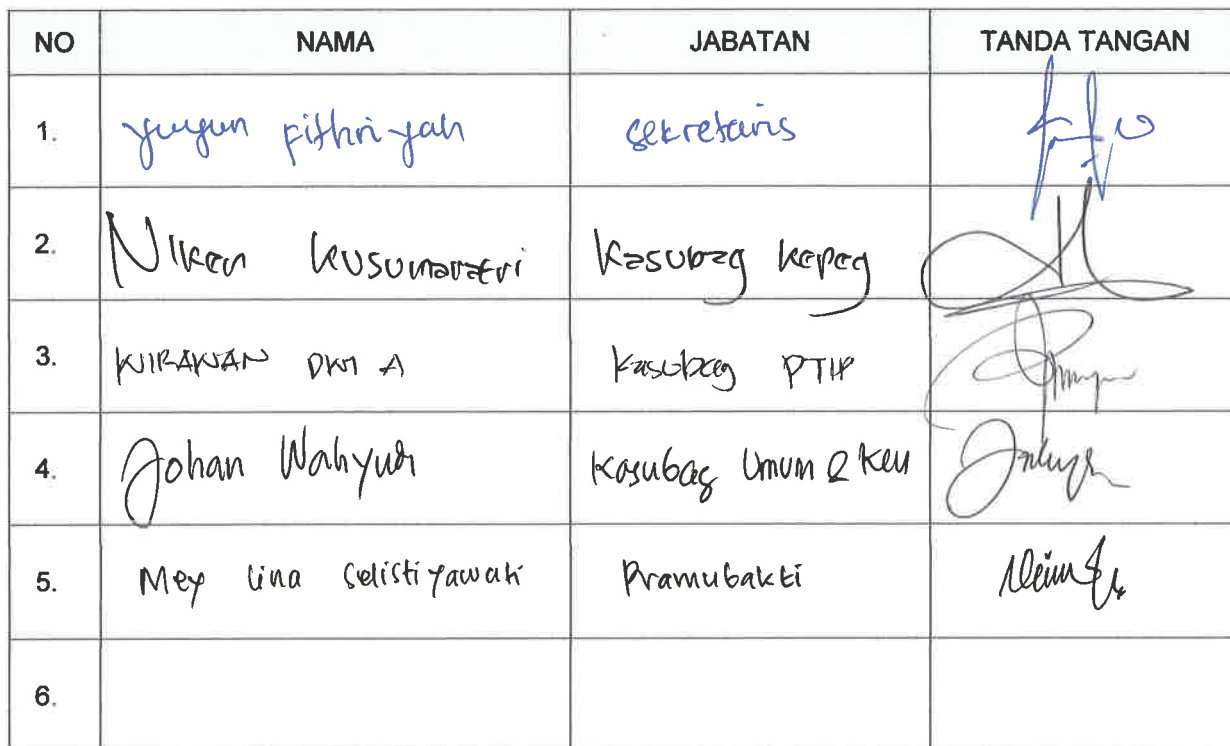 NO NAMA JABATAN TANDA TANGAN
1. Yuyun Fithriyah Sekretaris
2. Niken Kusumaratri Kasubag Kepeg
3. WIRAWAN DWI A Kasubag PTIP
4. Johan Wahyudi Kasubag Umum & Keu
5. Mey Lina Selistiyawati Pramubakti
6.